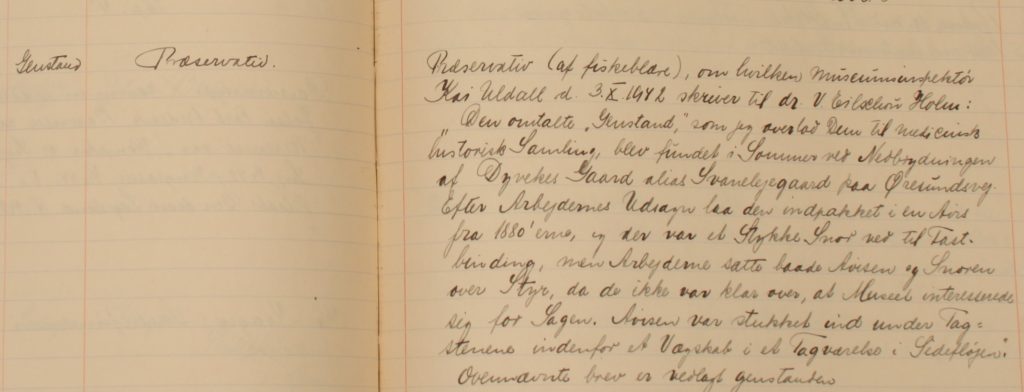 Genstand Præservativ.
Præservativ (af fiskeblære), om hvilken museumsinspektør
Kai Uldall d. 3.X.1942 skriver til dr. V. Eilschou Holm:
"Den omtalte „Genstand," som jeg overlod Dem til medicinsk
historisk Samling, blev fundet i Sommer ved Nedbrydningen
af Dyvekes Gaard alias Svanelejegaard paa Øresundsvej.
Efter Arbejdernes Udsagn laa den indpakket i en Avis
fra 1880'erne, og der var et Stykke Snor ved til Fast-
binding, men Arbejderne satte baade Avisen og Snoren
over Styr, da de ikke var klar over, at Museet interesserede
sig for Sagen. Avisen var stukket ind under Tag=
stenene indenfor et Vægskab i et Tagværelse i Sidefløjen".
Ovennævnte brev er vedlagt genstanden